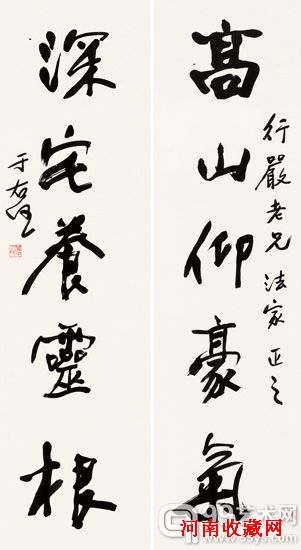 高山仰豪氣
行嚴老兄法家正之
深宅養靈根
于右任
河南收藏网
99艺术网
www.99ys.com